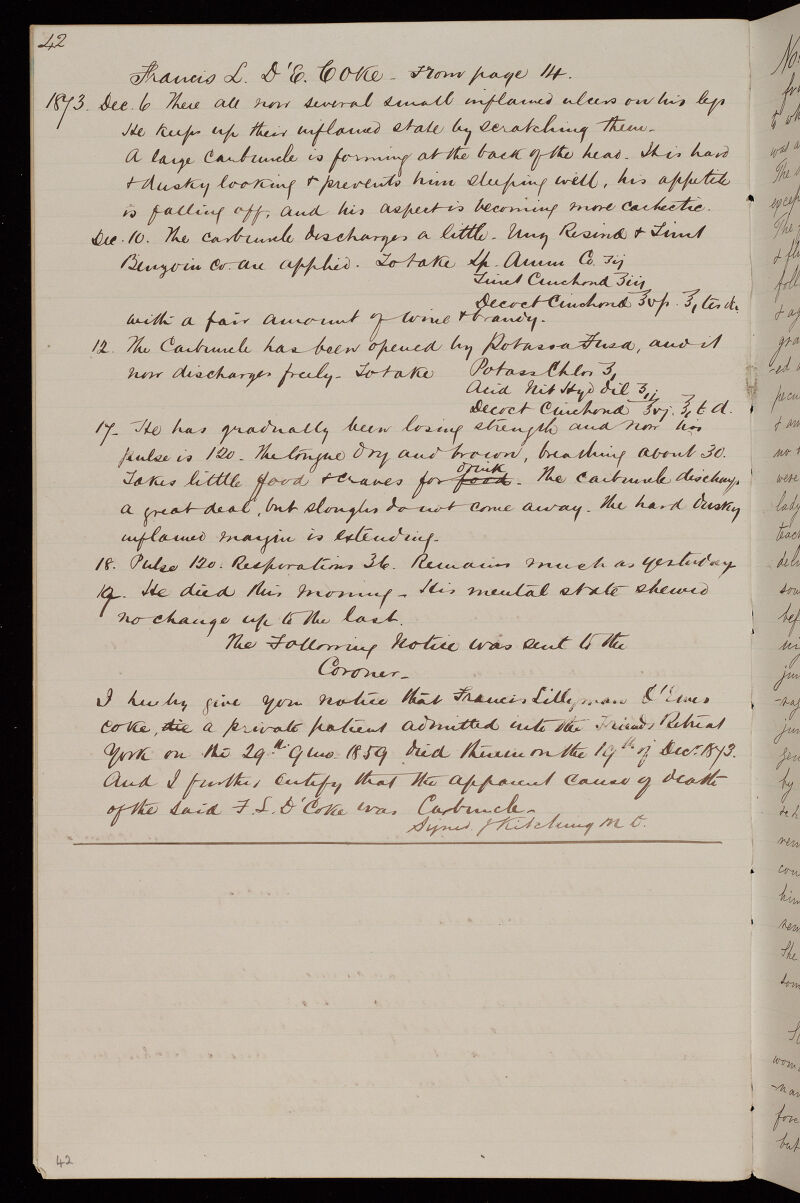 42
Francis L. D'E. Coke - From page 14.
1873. Dec. 6 There are now several small inflamed ulcers on his legs
He keeps up their inflamed state by scratching them.
A large Carbuncle is forming at the back of the head. It is hard
& dusky looking & prevents him sleeping well, his appetite
is falling off, and his aspect is becoming more cachectic.
Dec. 10. The carbuncle discharges a little. Ung Resinæ & Tinct
Benzoin Co. are applied. To take Sp. Amm Co. ʒij
Tinct Cinchonæ ʒiij
Decoct Cinchonæ ℥vfs. ℥j ter di
with a fair amount of wine & brandy.
12. The Carbuncle has been opened by Potassa Fusa, and it
now discharges freely. To take Potass Chlor ʒj
Acid Nit Hyd Dil ʒij
Decoct Cinchonæ ℥vj. ℥j t. d.
17- He has gradually been losing strength and now his
pulse is 120. The tongue dry and brown, breathing about 30.
drink
Takes little food & craves for food. The carbuncle discharges
a great deal, but sloughs do not come away. The hard dusky
inflamed margin is extending.
18. Pulse 120. Respirations 36. Remains much as yesterday
19. He died this morning. His mental state shewed
no change up to the last.
The Following Notice was sent to the
Coroner-
I hereby give you notice that Francis Lillyman D'Ewes
Coke, die a private patient admitted into the Friends Retreat
York on the 29th 9mo. 1859 died therein on the 19th of Decr. 1873.
And I further certify that the apparent cause of death
of the said F. L. D'Coke was Carbuncle-
Signed J Kitching M D.
42